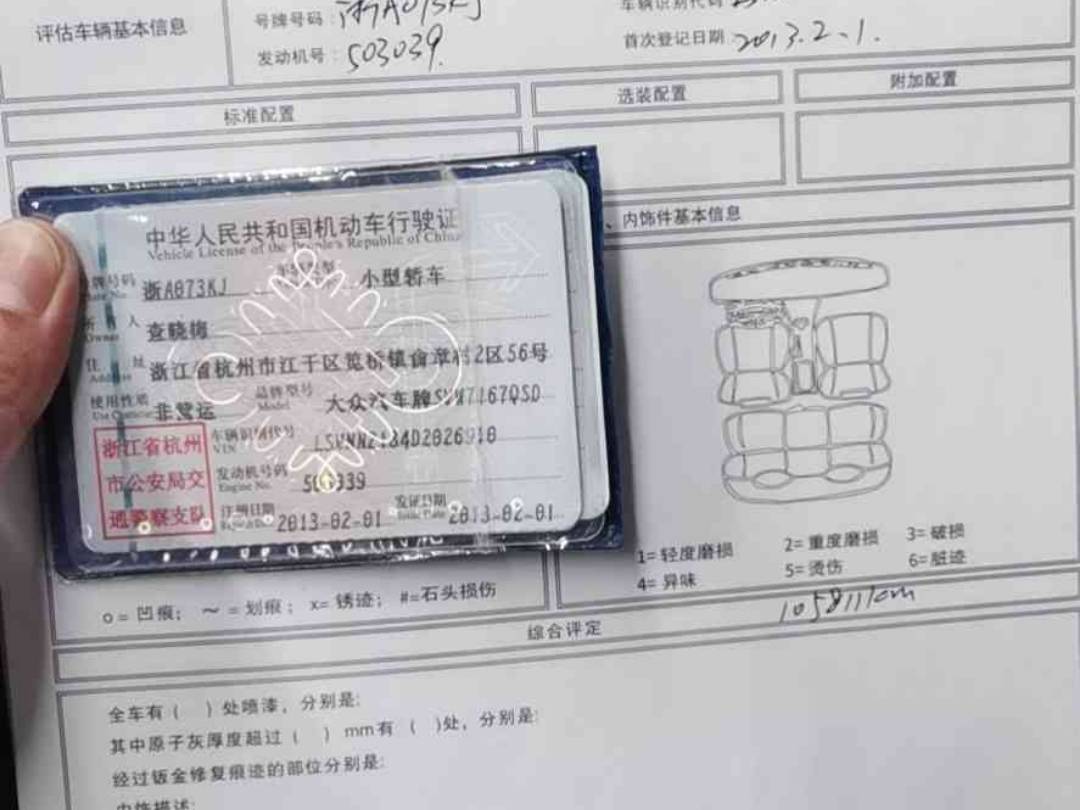 评估车辆基本信息
号牌号码：浙A073KJ
车辆识别代码
发动机号：503039.
首次登记日期 2013.2.1.
标准配置
选装配置
附加配置
内饰件基本信息
中华人民共和国机动车行驶证
Vehicle License of the People's Republic of China
号牌号码 浙A073KJ 车辆类型 小型轿车
Plate No.
所有人 查晓梅
Owner
住址 浙江省杭州市江干区笕桥镇俞章村2区56号
Address
使用性质 非营运 品牌型号 大众汽车牌SVW7167QSD
Use Character Model
浙江省杭州
市公安局交
通警察支队
车辆识别代号
VIN
发动机号码
Engine No.
注册日期 2013-02-01 发证日期 2013-02-01
Issue Date
1=轻度磨损 2=重度磨损 3=破损
4=异味 5=烫伤 6=脏迹
o=凹痕； ～=划痕； x=锈迹； #=石头损伤
105811km
综合评定
全车有（ ）处喷漆，分别是:
其中原子灰厚度超过（ ）mm有（ )处，分别是:
经过钣金修复痕迹的部位分别是:
内饰描述: